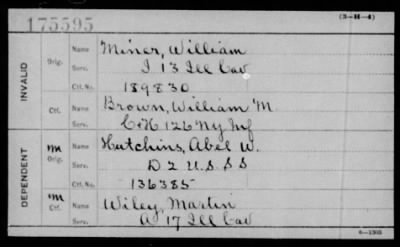 175595
(3-H-4)
INVALID
Orig.
Name Miner, William
Serv. I 13 Ill Cav
Ctf. No. 189830
Ctf.
Name Brown, William M
Serv. C&H 126 Ny Inf
DEPENDENT
m Orig.
Name Hutchins, Abel W.
Serv. D 2 U.S.S.S
Ctf. No. 136385
m Ctf.
Name Wiley, Martin
Serv. A 17 Ill Cav
6-1303